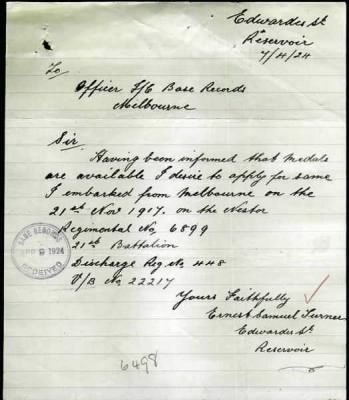 Edwardes St
Reservoir
7/4/24
To
Officer I/C Base Records
Melbourne
Sir
Having been informed that medals
are available I desire to apply for same
I embarked from Melbourne on the
21st Nov 1917. on the Nestor
Regimental No 6899
21st Battalion
Discharge Reg No 448
V/B No 22217
BASE RECORDS
APR 9 1924
RECEIVED
Yours Faithfully
Ernest Samuel Turner
Edwardes St.
Reservoir
6498